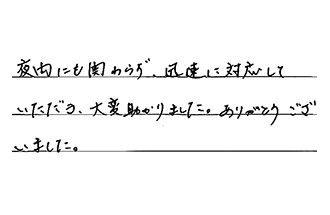 夜内にも関わらず、迅速に対応して
いただき、大変助かりました。ありがとうござ
いました。